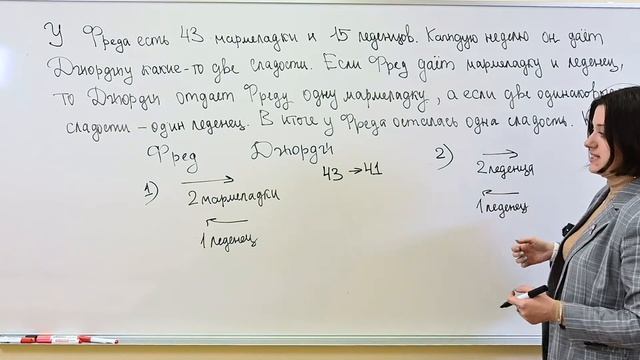 У Фреда есть 43 мармеладки и 15 леденцов. Каждую неделю он даёт
Джорджу какие-то две сладости. Если Фред даёт мармеладку и леденец,
то Джордж отдаёт Фреду одну мармеладку, а если две одинаковые
сладости - один леденец. В итоге у Фреда осталась одна сладость.
Фред Джордж
1) 2 мармеладки 43 → 41
1 леденец
2) 2 леденца
1 леденец